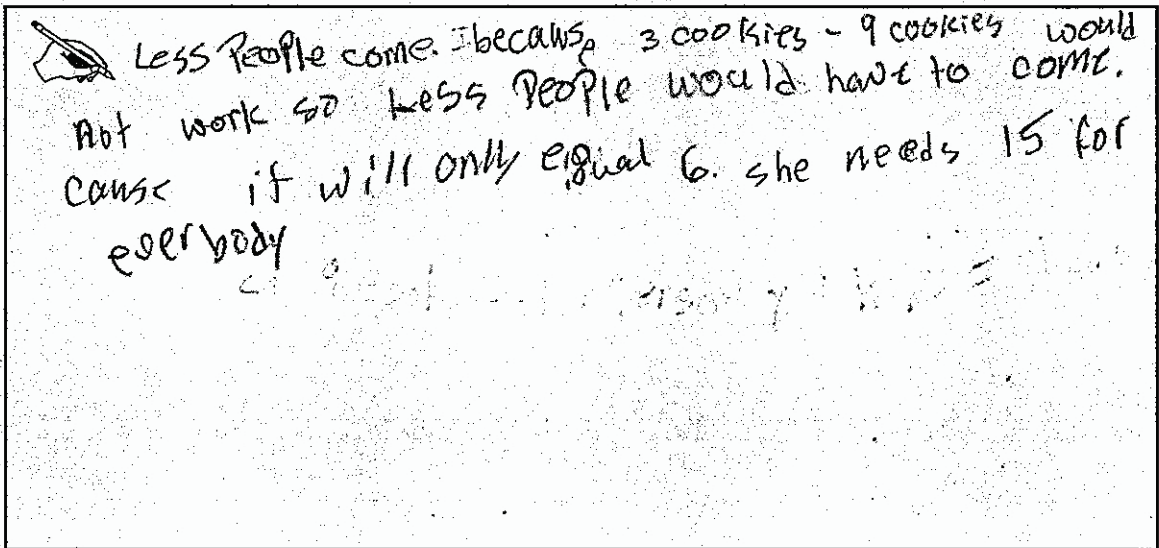 Less People come. I because 3 cookies - 9 cookies would
not work so Less People would have to come.
cause it will only equal 6. she needs 15 for
everbody